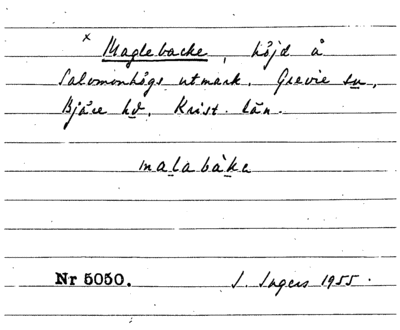 x Maglebacke, höjd å
Salomonhögs utmark. Grevie sn,
Bjäre hd, Krist. län.
malabáka
Nr 5050. S. Ingers 1955.